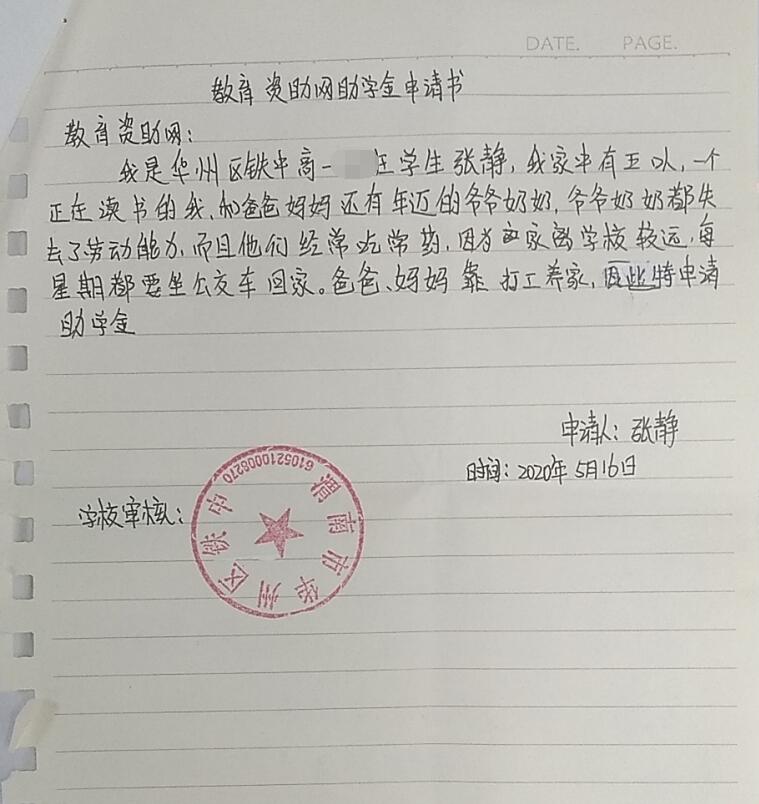 DATE. PAGE.
教育资助网助学金申请书
教育资助网:
我是华州区铁中高一 班学生张静,我家中有五口人,一个
正在读书的我,和爸爸妈妈还有年迈的爷爷奶奶,爷爷奶奶都失
去了劳动能力,而且他们经常吃常药,因为家离学校较远,每
星期都要坐公交车回家。爸爸、妈妈靠打工养家,因此特申请
助学金
申请人:张静
时间:2020年5月16日
学校审核:
渭南市华州区铁中
6105210008270